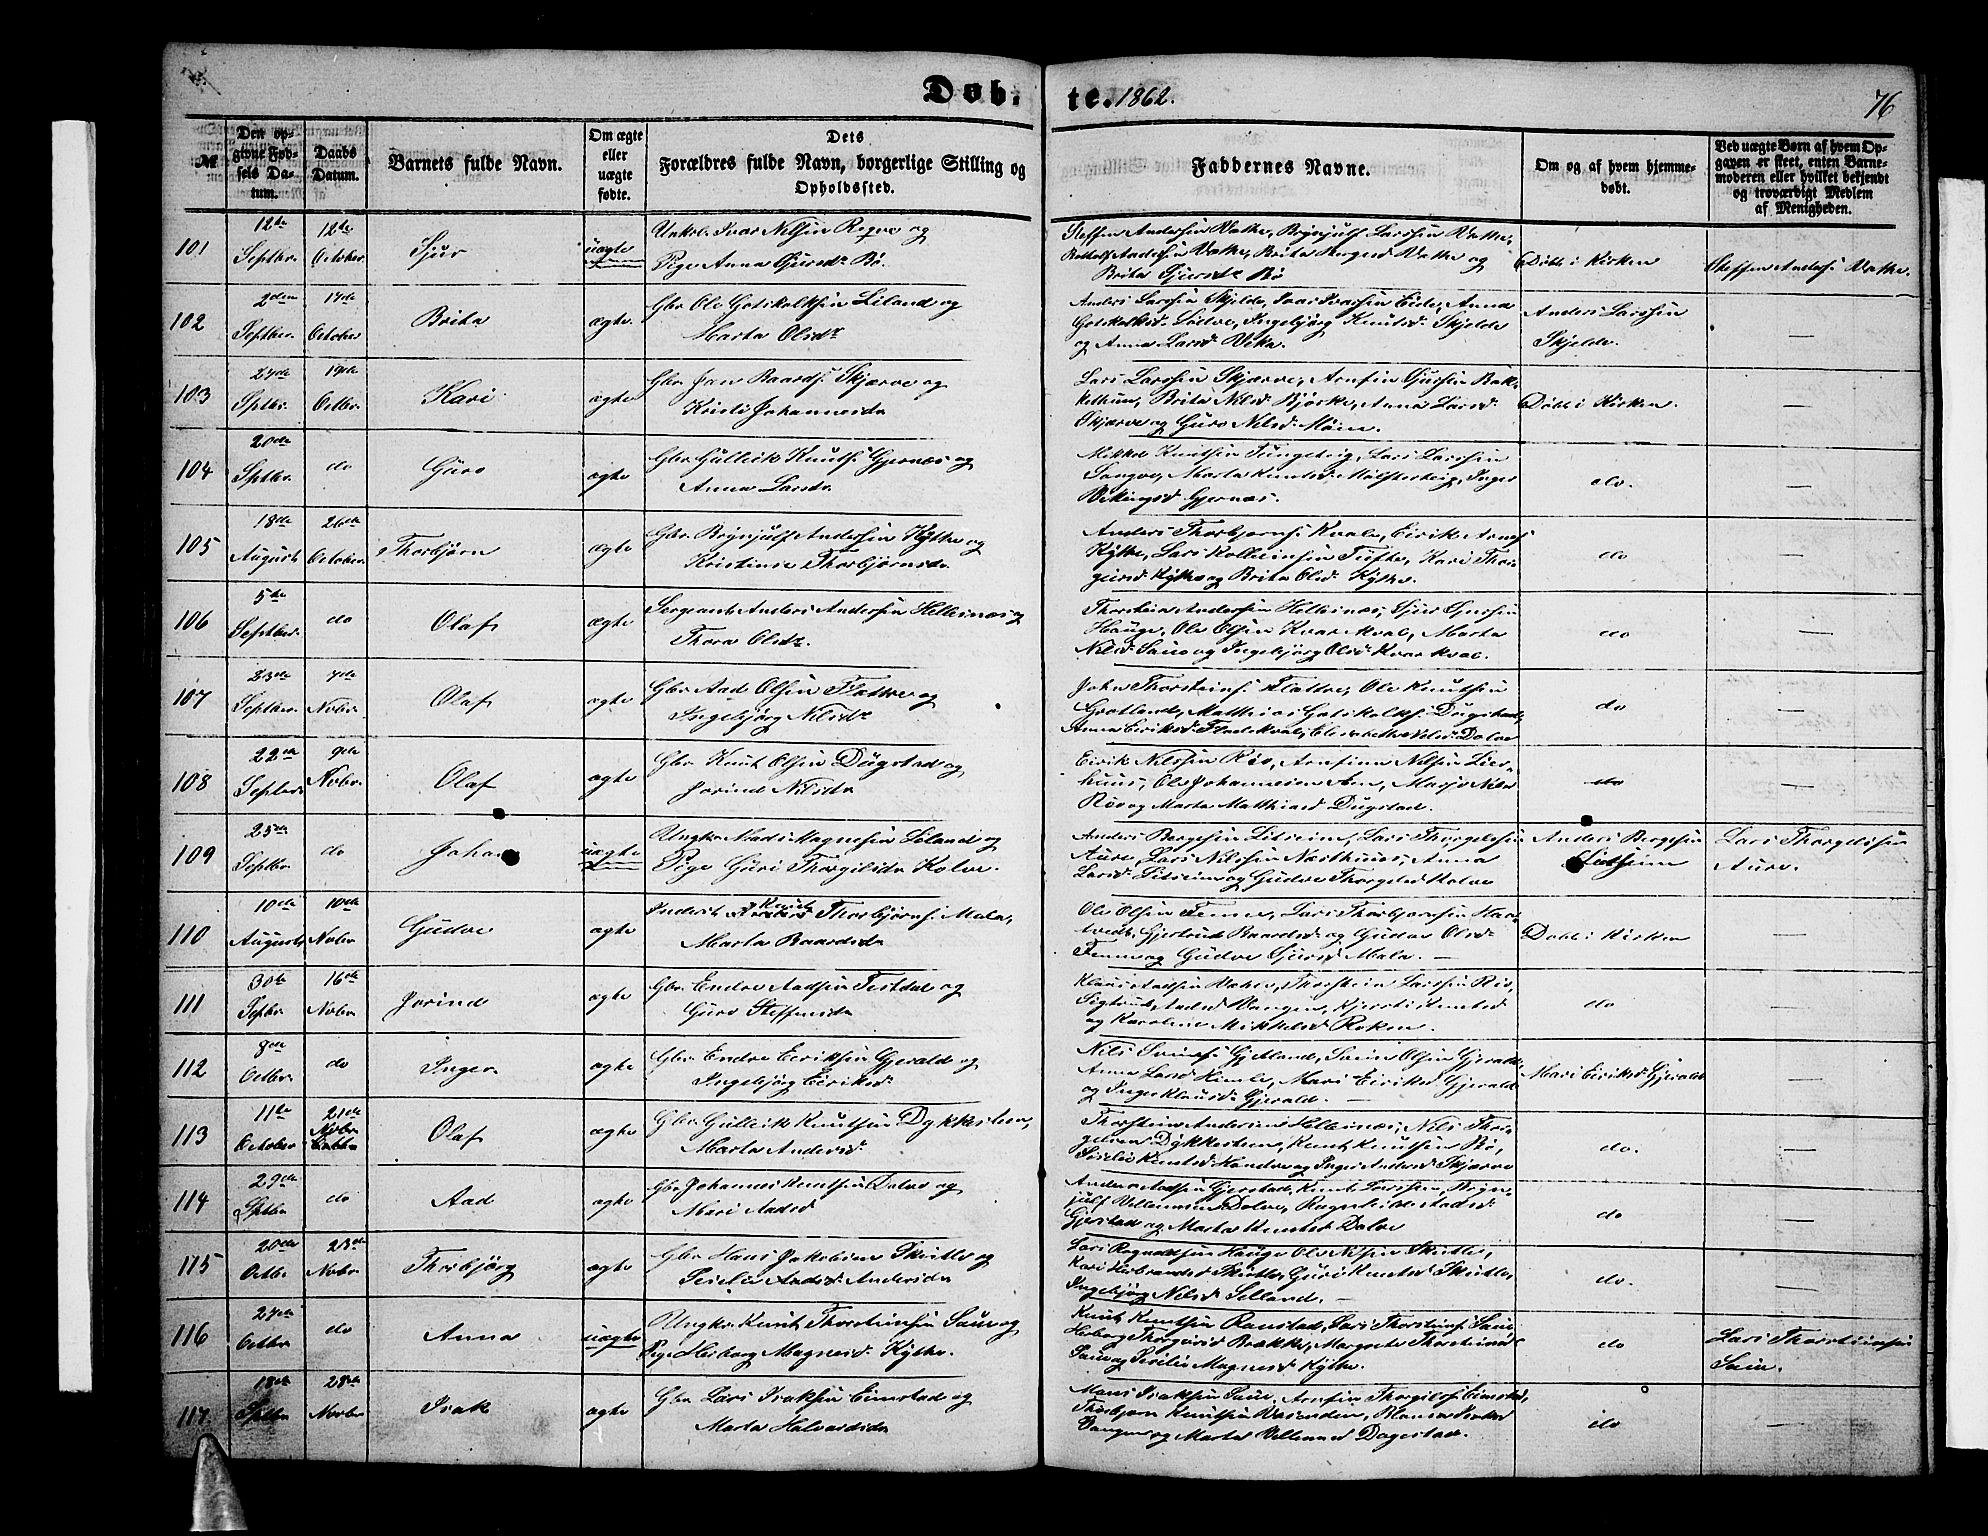 Döb-te. 1862. 76
№ | Den opgivne Fødsels Datum. | Daabs Datum. | Barnets fulde Navn. | Om ægte eller uægte fødte. | Dets Forældres fulde Navn, borgerlige Stilling og Opholdssted. | Faddernes Navne. | Om og af hvem hjemmedøbt. | Ved uægte Børn af hvem Opgaven er skeet, enten Barnemoderen eller hvilket bekjendt og troværdigt Medlem af Menigheden.
101 | 12te Septbr. | 12te October | Sjur | uægte | Unkrl. Ivar Nelsen Rogve og
Pige Anna Sjursdr Bø. | Steffen Andersen Væthe, Brynjulf Larssen Væthe,
Andersen Væthe, Brita Væthe og
Brita Sjursdr Bø | Döbt i Kirken | Steffen Anders. Væthe.
102 | 2den Septbr. | 17de October | Brita | ægte | Gbr. Ole Gotskalksen Liland og
Marta Olsdr | Anders Larssen Skjelde, Ivar Ivarsen Eide, Anna
Gotskalksd. Ingebjörg Knutsd. Skjelde
og Anna Larsd. | Anders Larssen
Skjelde. | —
103 | 27de Sptbr. | 19de Octbr. | Kari | ægte | Gbr. Jon Baards. Skjærve og
Kristi Johannesdr | Lars Larssen Skjærve, Arnfin Sjursen Bak-
kethun, Brita Nelsd. Björke, Anna Larsd.
Skjærve og Guro Nelsd. Möen. | Döbt i Kirken. | —
104 | 20de Sptbr. | do | Guro | ægte | Gbr. Gulleik Knuts. Gjernæs og
Anna Larsdr. | Mikkel Knutsen Lars Larssen
Marta Knutsd. Mölsterteig, Inger
Vikingsd. Gjernæs. | do. | —
105 | 18de August | 26de October | Thorbjörn | ægte | Gbr. Brynjulf Andersen Kythe og
Kristense Thorbjörnsdr. | Anders Thorbjörns. Kvale, Eirik Arnes.
Kythe, Lars Kolbeinsen Tufte, Kari Thor-
geirsd. Kythe og Brita Olsd. Kythe. | do | —
106 | 5te Septbr. | do | Olaf | ægte | Sergeant Anders Andersen Helleinæs og
Thora Olsdr. | Thorstein Andersen Helleinæs, Sjur Sjursen
Hauge, Ole Olsen Kvarkval, Marta
Nelsd. Saue og Ingebjörg Olsd. Kvarkval. | do | —
107 | 23de Septbr. | 7de Novbr. | Olaf | ægte | Gbr. Aad Olsen Flatte og
Ingebjörg Nelsdr | John Thorsteins. Flatte, Ole Knutsen
Grotland, Matthias Gotskalks. Dugstad,
Anna Eiriksd. Flatekval, Elisabeth Nelsd. Dolve | do | —
108 | 22de Septbr. | 9de Novbr. | Olaf | ægte | Gbr. Knut Olsen Dugstad og
Jorind Nelsdr | Eirik Nelssen Röv, Arnfinn Nelsen Lies-
huus, Ole Johannessen Marjo Nelsd.
Röv og Marta Matthiasd. Dugstad. | do | —
109 | 25de Septbr. | do | Johan | uægte | Ungkr. Mads Magnesen Liland og
Pige Guri Thorgilsdr Kolve. | Anders Bergesen Litseim, Lars Thorgilssen
Aure, Lars Nelssen Næsthuus, Anna
Larsd. Litseim og Gudve Thorgilsd. Kolve | Anders Bergesen
Litseim | Lars Thorgilssen
Aure.
110 | 10de August | 10de Novbr | Gudve | ægte | Inderst Knut Thorbjörns. Mala,
Marta Baardsdr | Ole Olsen Fenne, Lars Thorbjörnsen
Gjertrud Baardsd. og Gudve Olsd.
Fenne og Gudve Sjursd. Mala. — | Döbt i Kirken | —
111 | 30te Septbr | 16de Novbr | Jorind | ægte | Gbr. Endre Aadsen Tesdal og
Guro Steffensdr | Klaus Aadsen Thorstein Larssen Rio,
Sigtrud Aadsd. Vangen, Kjersti Knutsd.
og Karoline Mikkelsd. Roken. | do | —
112 | 8de Octbr. | do | Inger | ægte | Gbr. Endre Eiriksen Gjerald og
Ingebjörg Eiriksd. | Nils Svens. Gjetland, Svein Olsen Gjerald,
Anna Larsd. Himle, Mari Eiriksd. Gjerald
og Inger Klausd. Gjerald. — | Mari Eiriksd. Gjerald | —
113 | 11te October | 21de Novbr | Olaf | ægte | Gbr. Gulleik Knutsen Dykkesteen,
Marta Andersd. | Thorstein Andersen Helleinæs, Nils Thor-
geirsen Dykkesteen, Knut Knutsen Bø,
Seselie Knutsd. og Inger Andersd. Skjærve | do. | —
114 | 29de Sptbr | do | Aad | ægte | Gbr. Johannes Knutsen Dolve og
Mari Aadsd. | Anders Aadsen Gjerstad, Knut Larssen, Bryn-
julf Villumsen Dolve, Ragnhilde Aadsd.
Gjerstad og Marta Knutsd. Dolve | do | —
115 | 20de Octbr. | 23de Novbr. | Thorbjörg | ægte | Gbr. Hans Jakobsen Skutle og
Seselie Aadsd. Andersdr | Lars Rognaldsen Hauge, Ole Nelsen Skutle,
Kari Herbrandsd. Skutle, Guri Knutsd. Skutle,
Ingebjörg Nelsd. Selland. — | do. | —
116 | 27de Octbr | do | Anna | uægte | Ungkr. Knut Thorsteinsen Saue og
Pige Herborg Magnesd. Kythe. | Knut Knutsen Rønstad, Lars Thorsteins. Saue
Herborg Thorgeirsd. Brække, Margrete Thorsteinsd.
Saue og Seselie Magnesd. Kythe. | do | Lars Thorsteinsen
Saue.
117. | 18de Sptbr | 28de Novbr | Isak | ægte | Gbr. Lars Isaksen Eimstad og
Marta Halvardsdr | Mons Isaksen Saue, Arnfin Thorgilss. Eimstad,
Thorbjörn Knutsen Væsenden, Isaksd.
Vangen og Marta Villumsd. Dagestad. | do | —